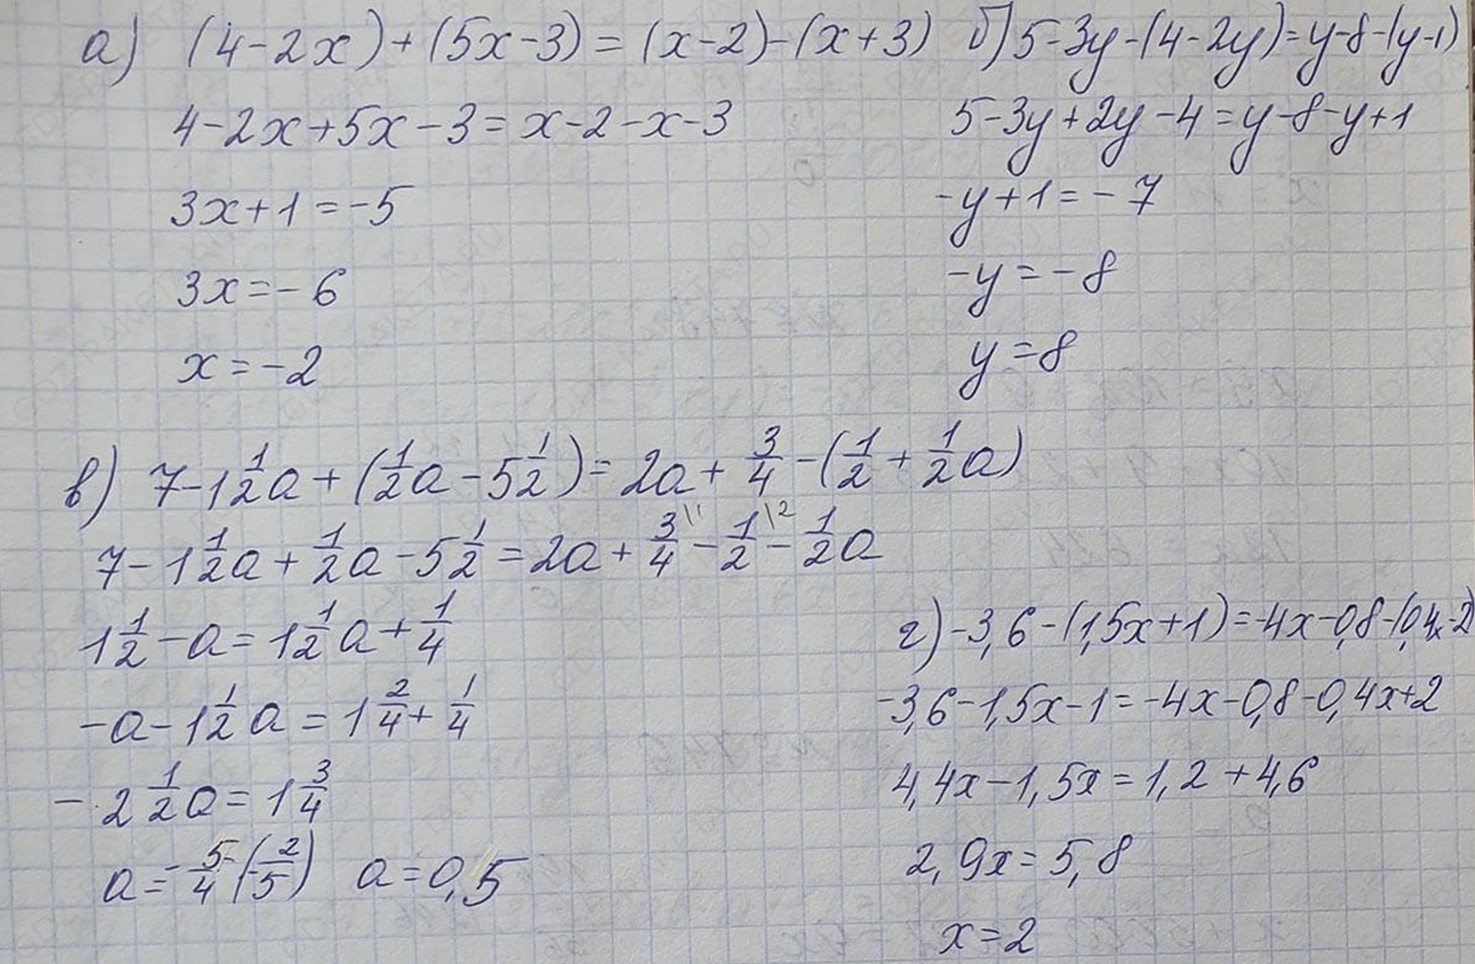 а) (4-2x)+(5x-3)=(x-2)-(x+3)
4-2x+5x-3=x-2-x-3
3x+1=-5
3x=-6
x=-2
б) 5-3y-(4-2y)=y-8-(y-1)
5-3y+2y-4=y-8-y+1
-y+1=-7
-y=-8
y=8
в) 7-1 1/2a+(1/2a-5 1/2)=2a+3/4-(1/2+1/2a)
7-1 1/2a+1/2a-5 1/2=2a+3/4\1-1/2\2-1/2a
1 1/2-a=1 1/2a+1/4
-a-1 1/2a=1 2/4+1/4
-2 1/2a=1 3/4
a=-5/4(-2/5) a=0,5
г) -3,6-(1,5x+1)=-4x-0,8-(0,4x-2)
-3,6-1,5x-1=-4x-0,8-0,4x+2
4,4x-1,5x=1,2+4,6
2,9x=5,8
x=2